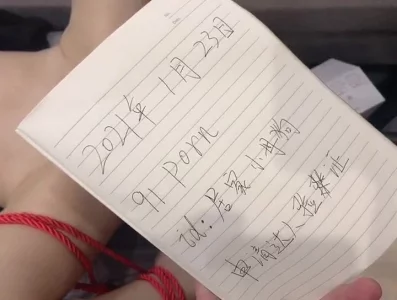 2024年 1月 23日
91 porn
id:居家小母狗
申请达人验证